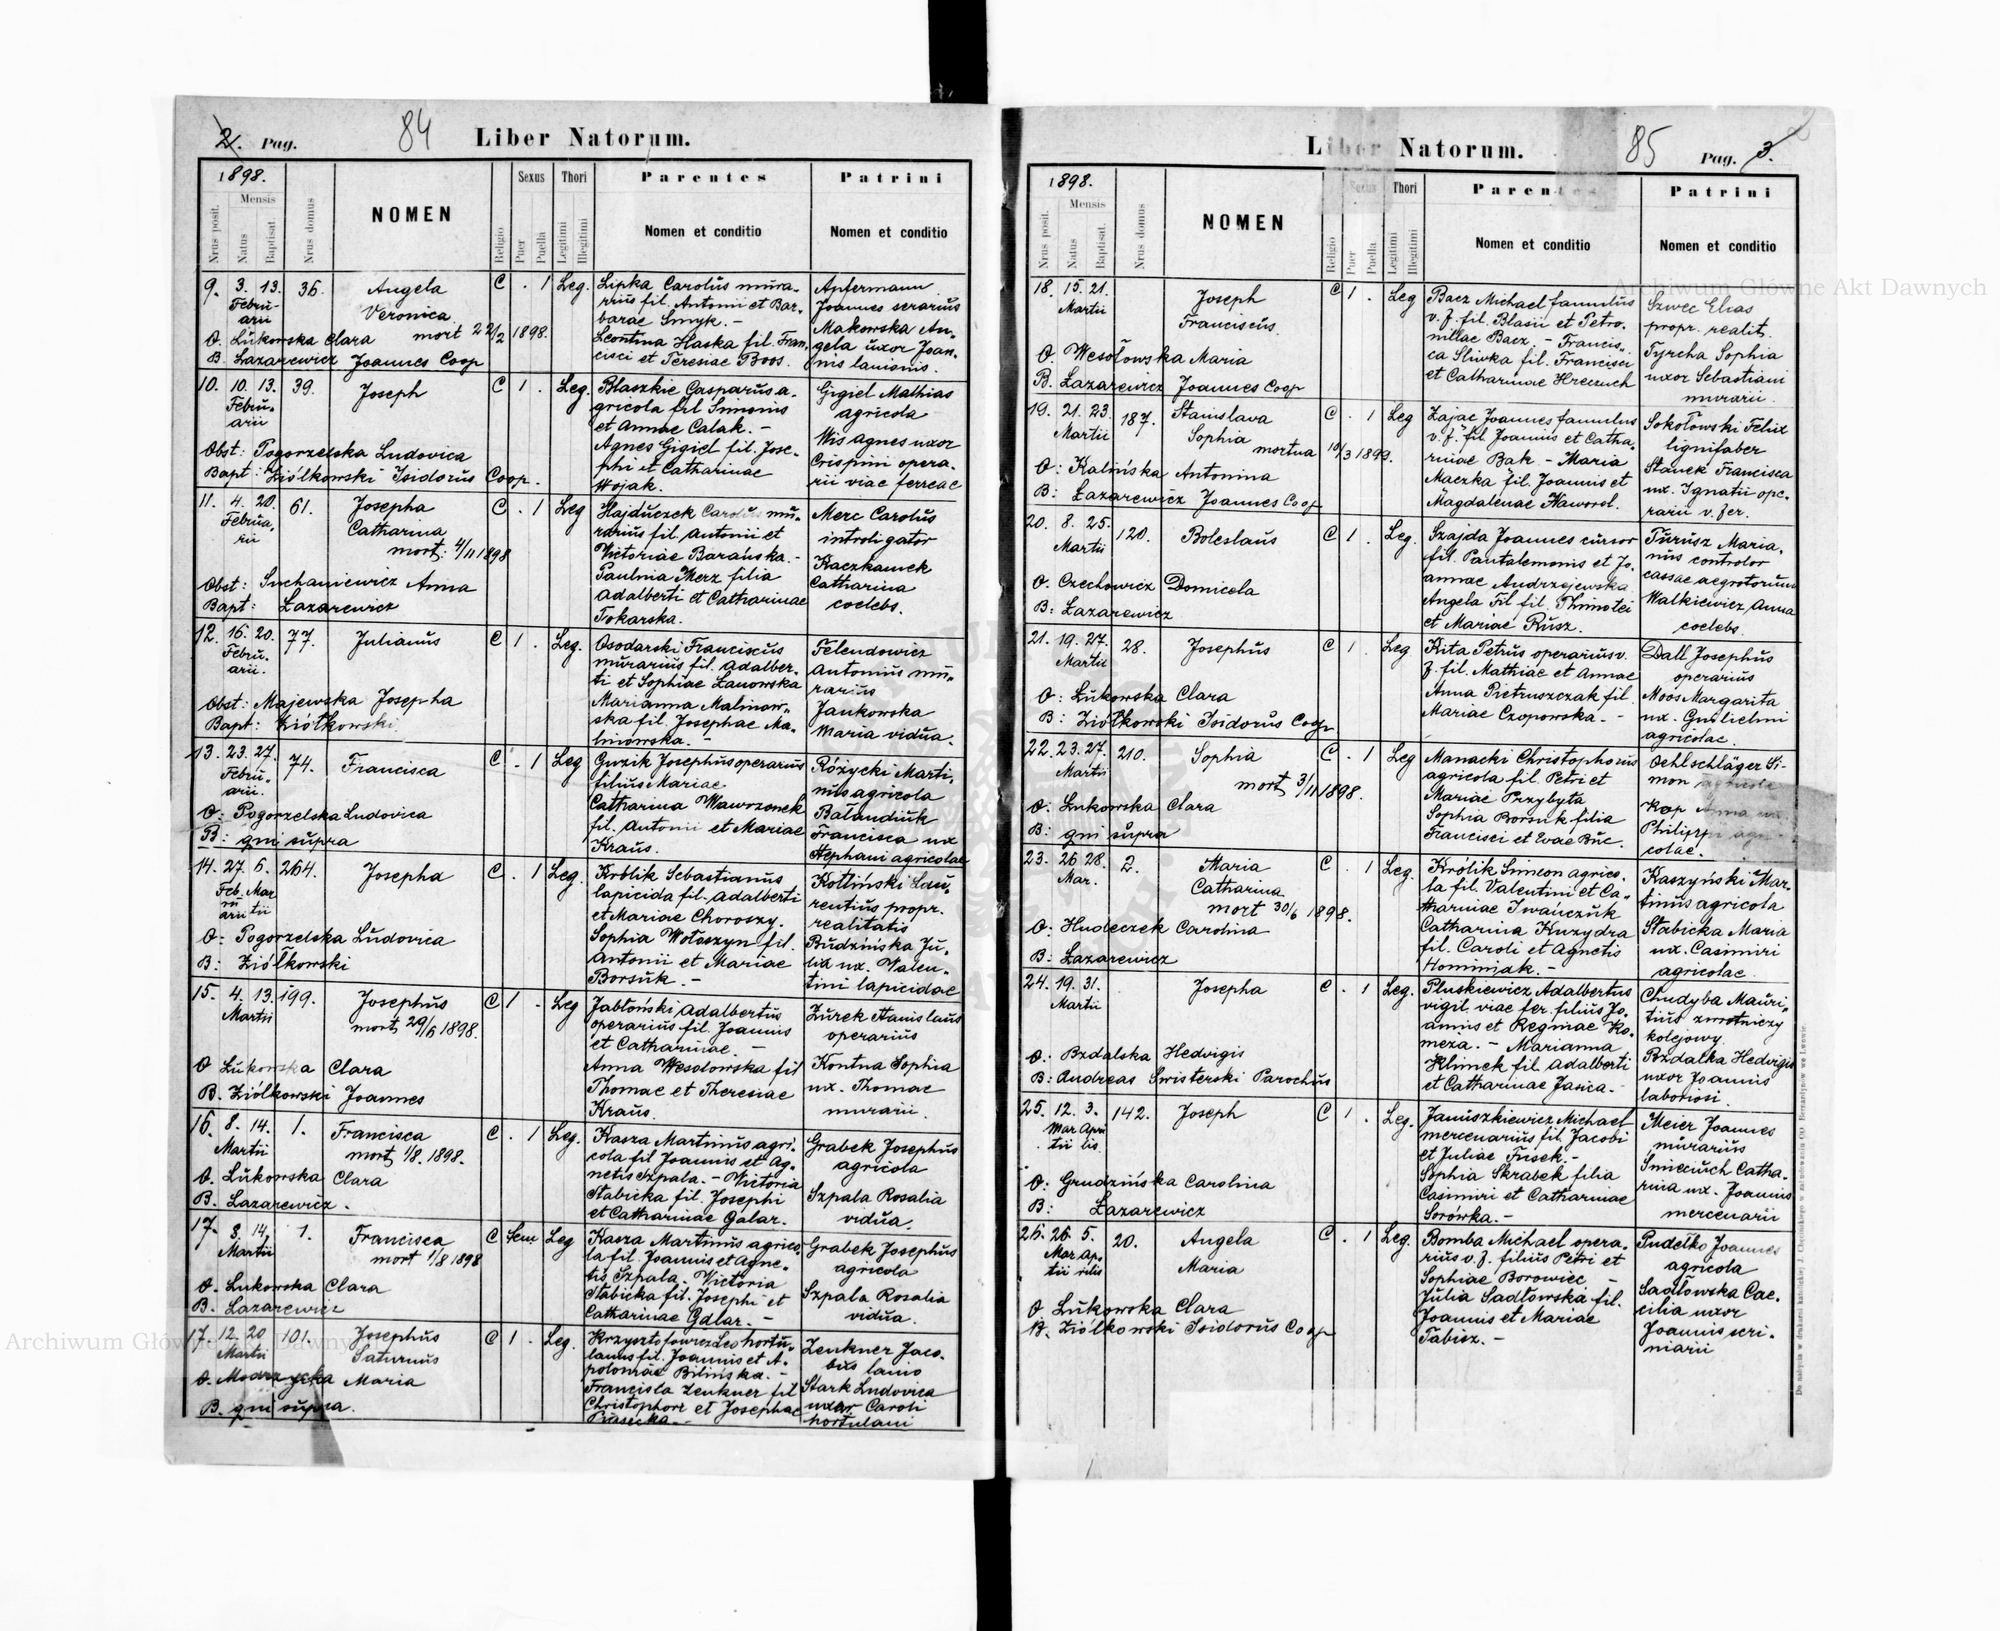 2. Pag. 84 Liber Natorum.
1898.
Nrus posit. Mensis Natus Baptisat. Nrus domus NOMEN Religio Sexus Puer Puella Thori Legitimi Illegitimi Parentes Nomen et conditio Patrini Nomen et conditio
9. 3. 13. 36. Angela C . 1 Leg. Lipka Carolus mura- Apfermann
Febru- Veronica rius fil. Antonii et Bar- Joannes serarius
arii mort 22/2 1898. barae Smyk. - Makowska An-
O. Lukowska Clara Leontina Haska fil. Fran- gela uxor Joan-
B. Lazarewicz Joannes Coop cisci et Teresiae Boos. nis lanionis.
10. 10. 13. 39. Joseph C 1 . Leg. Błaszkie Gasparus a- Gigiel Mathias
Febru- gricola fil Simonis agricola
arii et Annae Calak. -
Obst: Pogorzelska Ludovica Agnes Gigiel fil. Jose- Wis Agnes uxor
Bapt: Ziółkowski Isidorus Coop. phi et Catharinae Crispini opera-
Wojak. rii viae ferreae
11. 4. 20. 61. Josepha C . 1 Leg Hajduczek Carolus mu- Merc Carolus
Februa- Catharina rarius fil. Antonii et introligator
rii mort: 4/11 1898 Victoriae Barańska. - Kaczkamek
Obst: Suchaniewicz Anna Paulina Merz filia Catharina
Bapt: Lazarewicz Adalberti et Catharinae coelebs.
Tokarska.
12. 16. 20. 77. Julianus C 1 . Leg. Osodarski Franciscus Felendowicz
Febru- murarius fil. Adalber- Antonius mu-
arii. ti et Sophiae Łanowska rarius
Obst: Majewska Josepha Marianna Malinow- Jankowska
Bapt: Ziółkowski ska fil. Josephae Ma- Maria vidua.
linowska. -
13. 23. 27. 74. Francisca C . 1 Leg Guzik Josephus operarius Różycki Marti-
Febru- filius Mariae nus agricola
arii. Catharina Wawrzonek Bałanduk
O: Pogorzelska Ludovica fil. Antonii et Mariae Francisca ux
B: qui supra Kraus. Stephani agricolae
14. 27. 6. 264. Josepha C . 1 Leg. Króblik Sebastianus Kotliński Lau-
Feb. Mar lapicida fil. Adalberti rentius propr.
arii tii et Mariae Choroszy. realitatis
O: Pogorzelska Ludovica Sophia Wołoszyn fil. Budzińska Ju-
B: Ziółkowski Antonii et Mariae lia ux. Valen-
Borsuk. - tini lapicidae
15. 4. 13. 199. Josephus C 1 . Leg Jabłoński Adalbertus Żurek Stanislaus
Martii mort 29/6 1898. operarius fil. Joannis operarius
et Catharinae. -
O Lukowska Clara Anna Wesołowska fil Kontna Sophia
B. Ziółkowski Joannes Thomae et Theresiae ux. Thomae
Kraus. murarii.
16. 8. 14. 1. Francisca C . 1 Leg. Kasza Martinus agri- Grabek Josephus
Martii mort 1/8. 1898. cola fil Joannis et Ag- agricola
O. Lukowska Clara netis Szpala. - Victoria
B. Lazarewicz. Stabicka fil. Josephi Szpala Rosalia
et Catharinae Galar. vidua.
17. 8. 14. 1. Francisca C Leg Kasza Martinus agrico- Grabek Josephus
Martii mort 1/8 1898 la fil. Joannis et Agne- agricola
O. Lukowska Clara tis Szpala. Victoria
B. Lazarewicz Stabicka fil. Josephi et Szpala Rosalia
Catharinae Galar. - vidua.
17. 12. 20 101. Josephus C 1 . Leg. Krzysztofowicz Leo hortu- Zenkner Jaco-
Martii Saturnus lanus fil. Joannis et A- bus lanio
O. Modrzycka Maria poloniae Bilińska. - Stark Ludovica
B. qui supra. Francisla Zenkner fil uxor Caroli
Christophori et Josephae hortulani
Piasecka. -
Liber Natorum. 85 Pag. 3.
1898.
Nrus posit. Mensis Natus Baptisat. Nrus domus NOMEN Religio Sexus Puer Puella Thori Legitimi Illegitimi Parentes Nomen et conditio Patrini Nomen et conditio
18. 15. 21. Joseph C 1 . Leg Bacz Michael famulus Szwec Elias
Martii Franciscus v. f. fil. Blasii et Petro- propr. realit.
O. Wesołowska Maria nillae Bacz. - Francis- Tyrcha Sophia
B. Lazarewicz Joannes Coop ca Sliwka fil. Francisci uxor Sebastiani
et Catharinae murarii.
19. 21. 23. 187. Stanislava C . 1 Leg Zając Joannes famulus Sokołowski Felix
Martii Sophia v. f. fil Joannis et Catha- lignifaber
mortua 10/3 1899. rinae Bak - Maria Stanek Francisca
O: Kalińska Antonina Maczka fil. Joannis et ux. Ignatii ope-
B: Lazarewicz Joannes Coop Magdalenae Haworol. rarii v. fer.
20. 8. 25. 120. Boleslaus C 1 . Leg. Szajda Joannes cursor Turusz Maria-
Martii fil. Pantalemonis et Jo- nus controlor
O. Czechowicz Domicela annae Andrzejewska cassae aegrotorum
B: Lazarewicz Angela Fil fil. Thimotei Walkiewicz Anna
et Mariae Rusz. coelebs.
21. 19. 27. 28. Josephus C 1 . Leg Kita Petrus operarius v. Dall Josephus
Martii f. fil. Mathiae et Annae operarius
O: Lukowska Clara Anna Pietruszczak fil. Moos Margarita
B: Ziółkowski Isidorus Coop Mariae Czopowska. - ux. Gulielmi
agricolae.
22 23. 27. 210. Sophia C . 1 Leg Manacki Christophorus Oehlschläger Si-
Martii mort 3/11 1898. agricola fil. Petri et mon agricola
O: Lukowska Clara Mariae Przybyła Kop Anna ux.
B: qui supra Sophia Borsuk filia Philippi agri-
Francisci et Evae Buc. colae.
23. 26 28. 2. Maria C . 1 Leg. Królik Simeon agrico- Kaszyński Mar-
Mar. Catharina la fil. Valentini et Ca- tinus agricola
mort 30/6 1898. tharinae Iwańczuk Stabicka Maria
O: Hudeczek Carolina Catharina Huzydra ux. Casimiri
B: Lazarewicz fil. Caroli et Agnetis agricolae.
Hominiak. -
24. 19. 31. Josepha C . 1 Leg. Pluskiewicz Adalbertus Chudyba Mauri-
Martii vigil. viae fer. filius Jo- tius zwrotniczy
annis et Reginae Ko- kolejowy.
O.: Bzdalska Hedvigis meza. - Marianna Bzdalka Hedvigis
B: Andreas Swisterski Parochus Klimek fil Adalberti uxor Joannis
et Catharinae Jasica. - laboriosi.
25. 12. 3. 142. Joseph C 1 . Leg. Januszkiewicz Michael Meier Joannes
Mar. Apri mercenarius fil. Jacobi murarius
tii lis. et Juliae Fusek. - Śmieciuch Catha-
O: Grudzińska Carolina Sophia Skrabek filia rina ux. Joannis
B: Lazarewicz Casimiri et Catharinae mercenarii
Sorówka. -
26. 26. 5. 20. Angela C . 1 Leg. Bomba Michael opera- Pudełko Joannes
Mar. Ap- Maria rius v. f. filius Petri et agricola
tii rilis Sophiae Borowiec - Sadłowska Cae-
O Lukowska Clara Julia Sadłowska fil. cilia uxor
B. Ziółkowski Isidorus Coop Joannis et Mariae Joannis scri-
Tabisz. - niarii
Archiwum Główne Akt Dawnych
Archiwum Główne Akt Dawnych